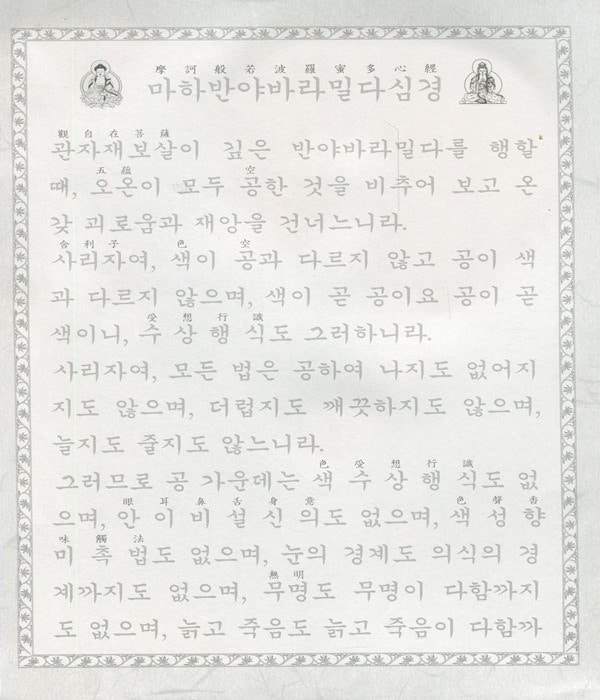 摩訶般若波羅蜜多心經
마하반야바라밀다심경
觀自在菩薩
관자재보살이 깊은 반야바라밀다를 행할
五蘊 空
때, 오온이 모두 공한 것을 비추어 보고 온
갖 괴로움과 재앙을 건너느니라.
舍利子 色 空
사리자여, 색이 공과 다르지 않고 공이 색
과 다르지 않으며, 색이 곧 공이요 공이 곧
受想行識
색이니, 수 상 행 식도 그러하니라.
사리자여, 모든 법은 공하여 나지도 없어지
지도 않으며, 더럽지도 깨끗하지도 않으며,
늘지도 줄지도 않느니라.
色受想行識
그러므로 공 가운데는 색 수 상 행 식도 없
眼耳鼻舌身意 色聲香
으며, 안 이 비 설 신 의도 없으며, 색 성 향
味觸法
미 촉 법도 없으며, 눈의 경계도 의식의 경
無明
계까지도 없으며, 무명도 무명이 다함까지
도 없으며, 늙고 죽음도 늙고 죽음이 다함까